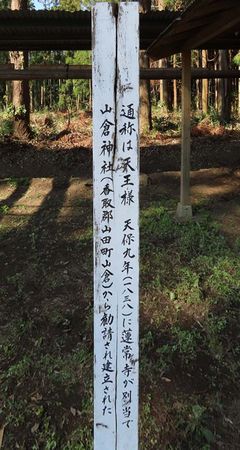 通称は天王様 天保九年(一八三八)に蓮常寺が別当で
山倉神社(香取郡山田町山倉)から勧請され建立された